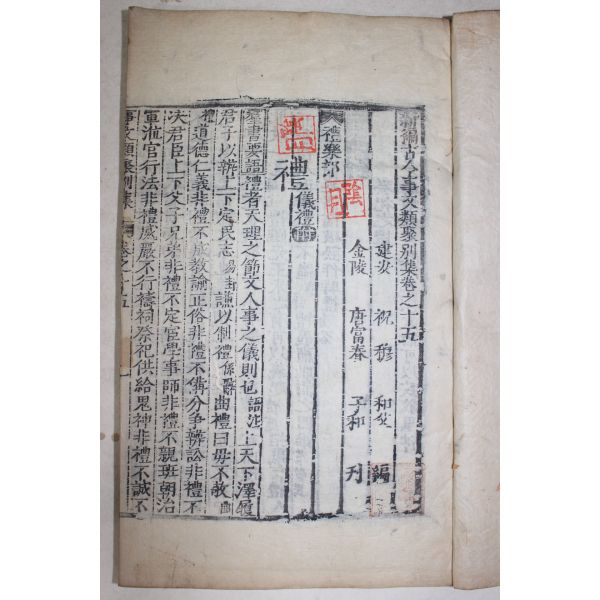 新編古今事文類聚別集卷之十五
建安 祝 穆 和父 編
金陵 唐富春 子和 刊
禮樂部
禮 儀禮
羣書要語禮者天理之節文人事之儀則也語註上天下澤履
君子以辨上下定民志易卦謙以制禮係辭曲禮曰毋不敬曲
禮道德仁義非禮不成教訓正俗非禮不備分爭辨訟非禮不
決君臣上下父子兄弟非禮不定宦學事師非禮不親班朝治
軍涖官行法非禮威嚴不行禱祠祭祀供給鬼神非禮不誠不
事文類聚別集 卷之十五